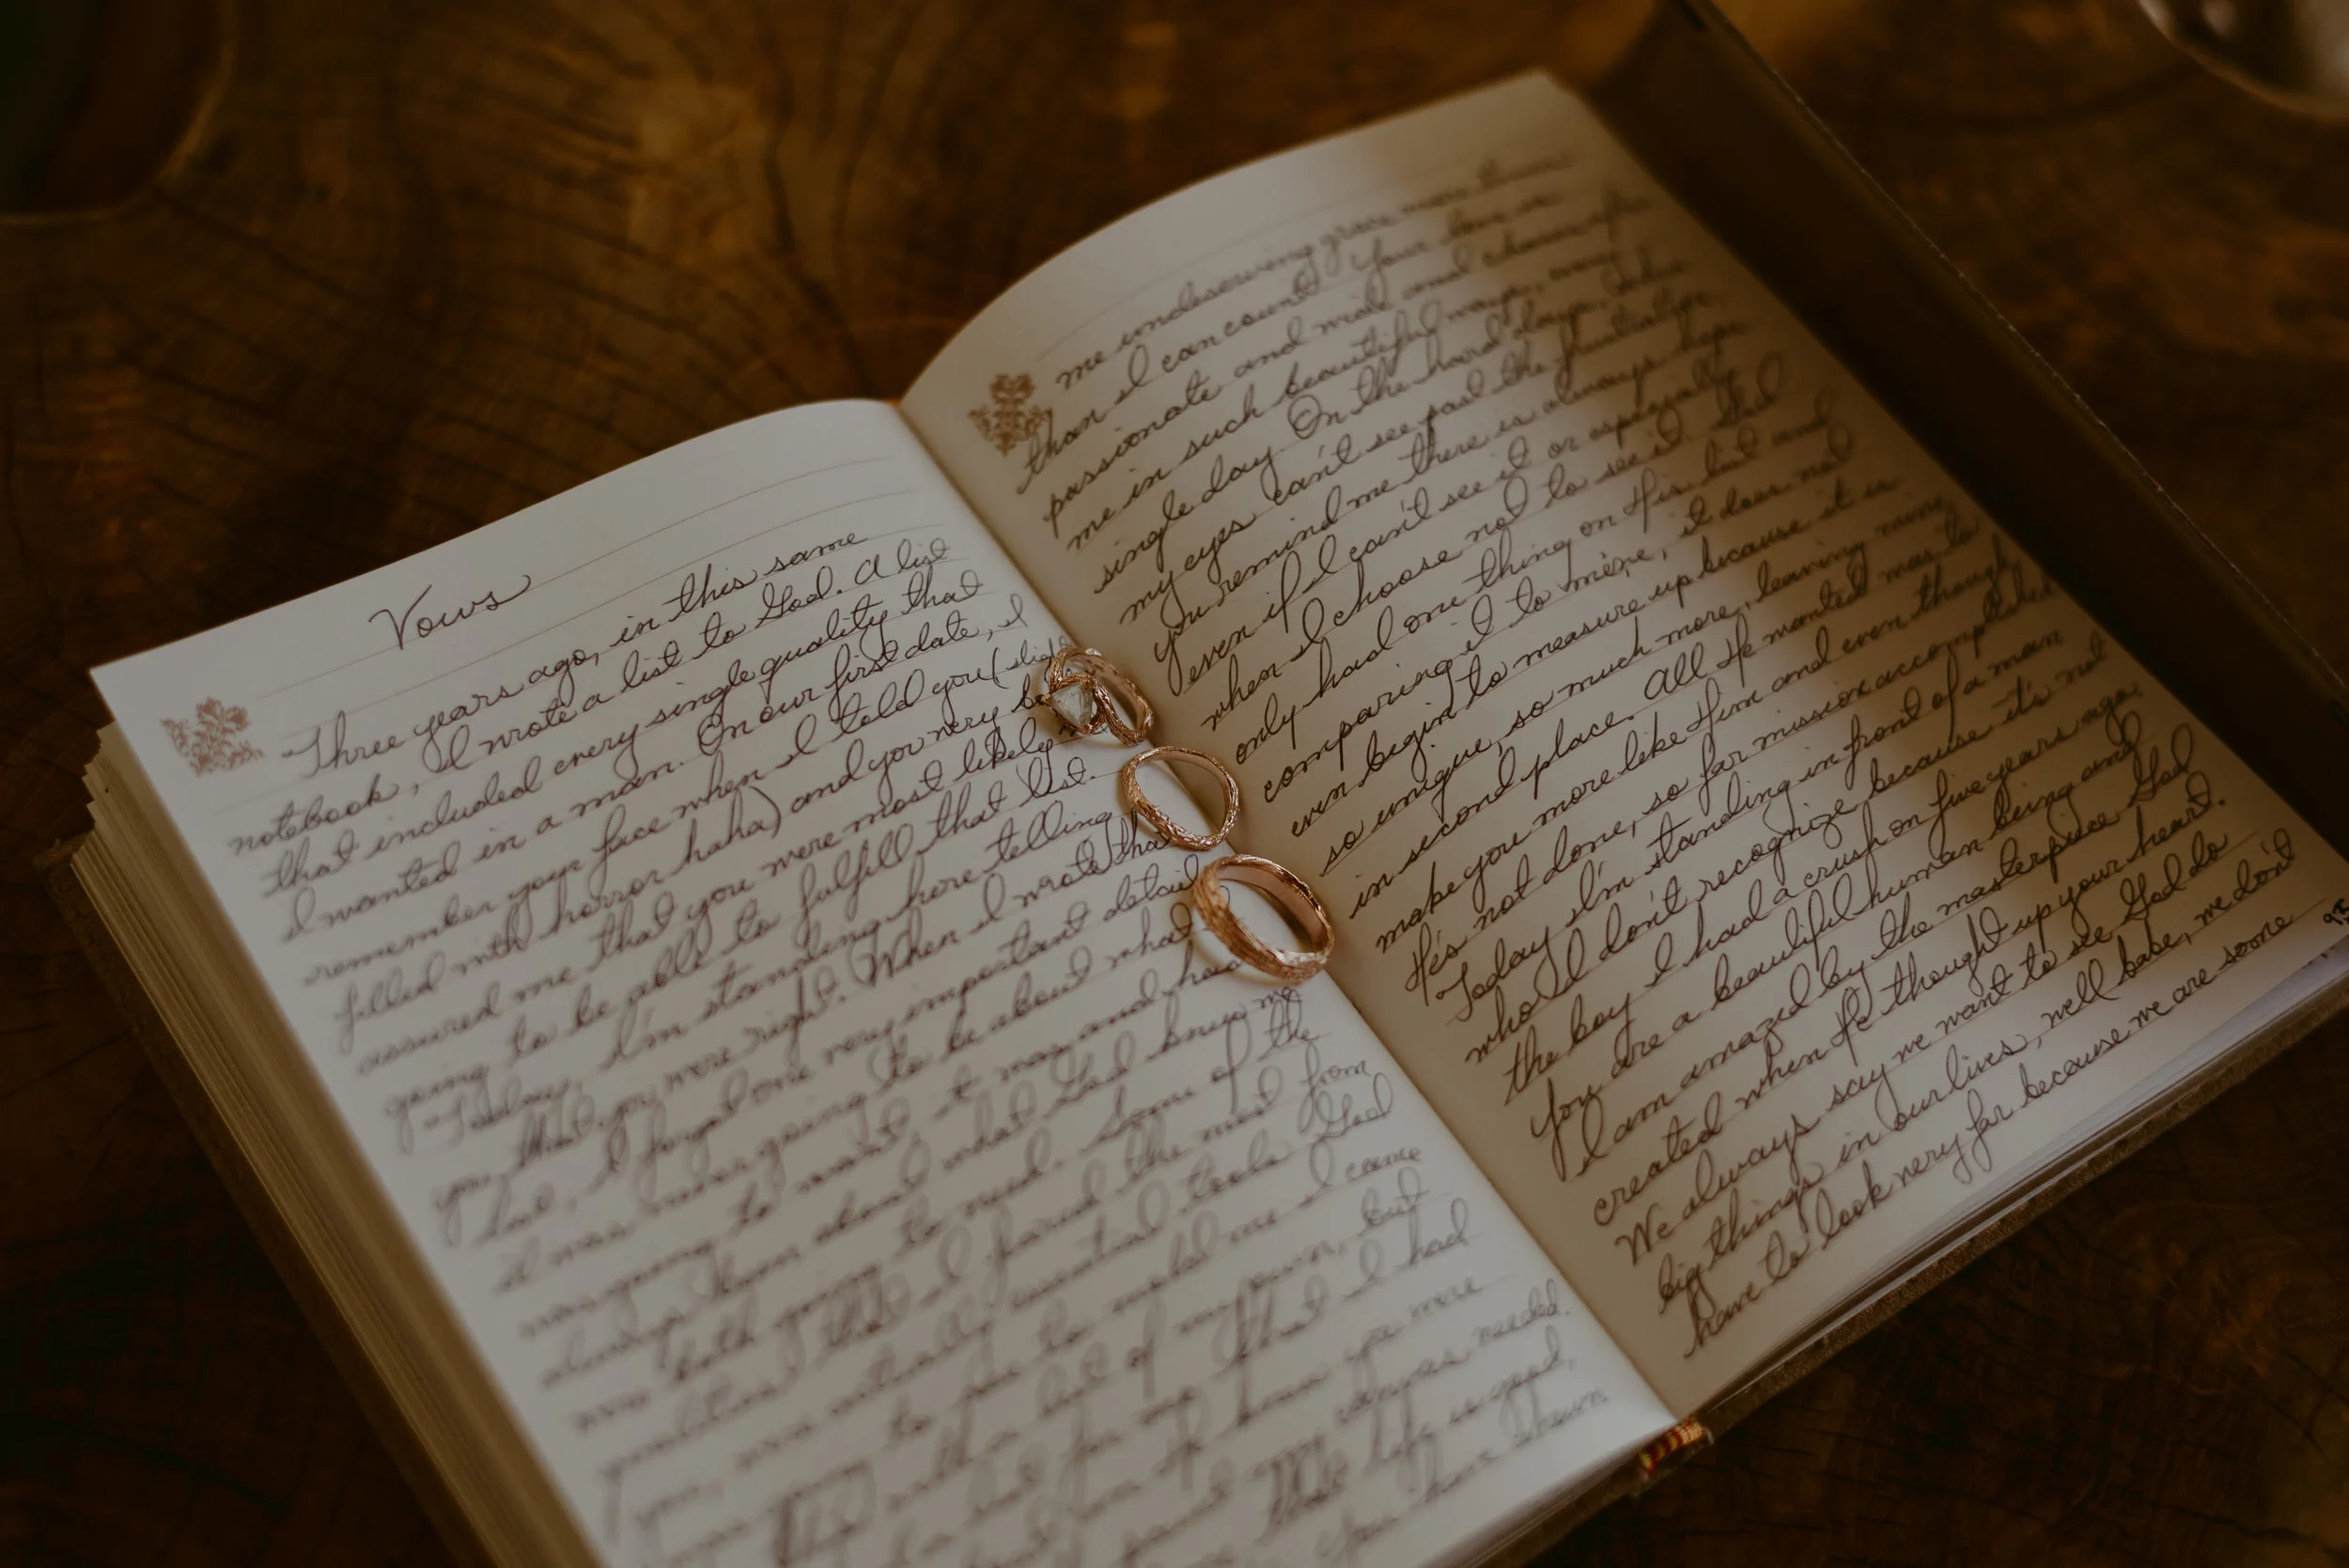 Vows
Three years ago, in this same
notebook, I wrote a list to God. A list
that included every single quality that
I wanted in a man. On our first date, I
remember your face when I told you (
filled with horror haha) and you very
assured me that you were most likely
going to be able to fulfill that list.
Today, I'm standing here telling
you that you were right. When I wrote that
list, I forgot one very important detail
it was never going to be about what
was going to want, it was and has
always been about what God knew
both going to need. Some of the
qualities that I from
you, were actually essential tools God
to use to mold me I came
this with a list of my own, but
a list for me that I had
you were
was needed.
life is good,
you have shown
me undeserving grace more times
than I can count. Your love is
passionate and wild and chases after
me in such beautiful ways, every
single day. On the hard days, when
my eyes can't see past the frustration,
you remind me there is always hope
even if I can't see it or especially
when I choose not to see it. God
only had one thing on His list and
comparing it to mine, it does not
even begin to measure up because it is
so unique, so much more, leaving mine
in second place. All He wanted was to
make you more like Him and even though
He's not done, so far mission accomplished
Today I'm standing in front of a man
who I don't recognize because it's not
the boy I had a crush on five years ago.
You are a beautiful human being and
I am amazed by the masterpiece God
created when He thought up your heart.
We always say we want to see God do
big things in our lives, well babe, we don't
have to look very far because we are some